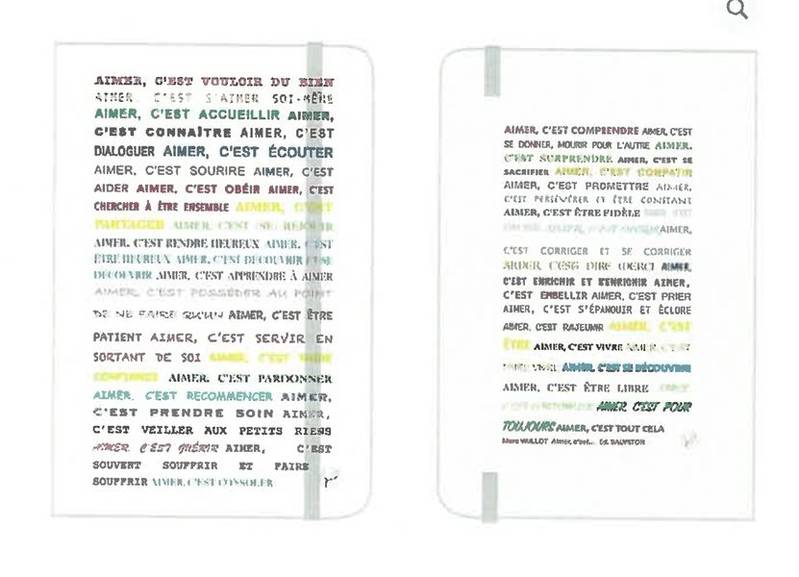 AIMER, C'EST VOULOIR DU BIEN
AIMER, C'EST S'AIMER SOI-MÊME
AIMER, C'EST ACCUEILLIR AIMER,
C'EST CONNAÎTRE AIMER, C'EST
DIALOGUER AIMER, C'EST ÉCOUTER
AIMER, C'EST SOURIRE AIMER, C'EST
AIDER AIMER, C'EST OBÉIR AIMER, C'EST
CHERCHER À ÊTRE ENSEMBLE AIMER, C'EST
PARTAGER AIMER, C'EST SE REJOUIR
AIMER, C'EST RENDRE HEUREUX AIMER, C'EST
ÊTRE HEUREUX AIMER, C'EST DECOUVRIR C'SE
DECOUVRIR AIMER, C'EST APPRENDRE À AIMER
AIMER, C'EST POSSÉDER AU POINT
DE NE FAIRE QU'UN AIMER, C'EST ÊTRE
PATIENT AIMER, C'EST SERVIR EN
SORTANT DE SOI AIMER, C'EST FAIRE
CONFIANCE AIMER, C'EST PARDONNER
AIMER, C'EST RECOMMENCER AIMER,
C'EST PRENDRE SOIN AIMER,
C'EST VEILLER AUX PETITS RIENS
AIMER C'EST GUÉRIR AIMER, C'EST
SOUVENT SOUFFRIR ET FAIRE
SOUFFRIR AIMER, C'EST CONSOLER
AIMER, C'EST COMPRENDRE AIMER, C'EST
SE DONNER, MOURIR POUR L'AUTRE AIMER,
C'EST SURPRENDRE AIMER, C'EST SE
SACRIFIER AIMER, C'EST COMPATIR
AIMER, C'EST PROMETTRE AIMER,
C'EST PERSÉVÉRER ET ÊTRE CONSTANT
AIMER, C'EST ÊTRE FIDÈLE
AIMER,
C'EST CORRIGER ET SE CORRIGER
AIMER C'EST DIRE MERCI AIMER,
C'EST ENRICHIR ET S'ENRICHIR AIMER,
C'EST EMBELLIR AIMER, C'EST PRIER
AIMER, C'EST S'ÉPANOUIR ET ÉCLORE
AIMER, C'EST RAJEUNIR AIMER, C'EST
ÊTRE AIMER, C'EST VIVRE
AIMER, C'EST SE DÉCOUVRIR
AIMER, C'EST ÊTRE LIBRE
AIMER, C'EST POUR
TOUJOURS AIMER, C'EST TOUT CELA
Marc WILLOT Aimer, c'est... Ed. SALVATOR